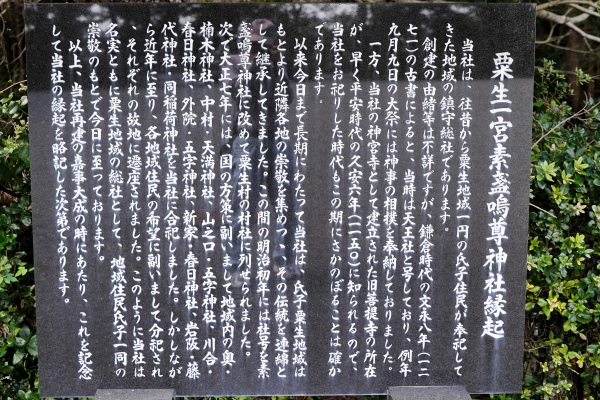 粟生一宮素盞嗚尊神社縁起
当社は、往昔から粟生地域一円の氏子住民が奉祀して
きた地域の鎮守総社であります。
創建の由緒等は不詳ですが、鎌倉時代の文永八年（一二
七一）の古書によると、当時は天王社と号しており、例年
九月九日の大祭には神事の相撲を奉納しておりました。
一方、当社の神宮寺として建立された旧善提寺の所在
が、早く平安時代の久安六年（一一五〇）に知られるので、
当社をお祀りした時代もこの期にさかのぼることは確か
であります．
以来今日まで長期にわたって当社は、氏子粟生地域は
もとより近隣各地の崇敬を集めつゝ、その伝統を連綿と
して継承してきました。この間の明治初年には社号を素
盞嗚尊神社に改めて粟生村の村社に列せられました。
次で大正七年には、国の方策に副いまして地域内の奥・
楠木神社、中村・天満神社、山之口・五字神社、川合・
春日神社、外院・五字神社、新家・春日神社、岩阪・藤
代神社・同稲荷神社を当社に合祀しました。しかしなが
ら近年に至り、各地域住民の希望に副いまして分祀され
、それぞれの故地に遷座されました。このように当社は
名実ともに粟生地域の総社として、地域住民氏子一同の
崇敬のもとで今日に至っております。
以上、当社再建の嘉事大成の時にあたり、これを記念
して当社の縁起を略記した次第であります。